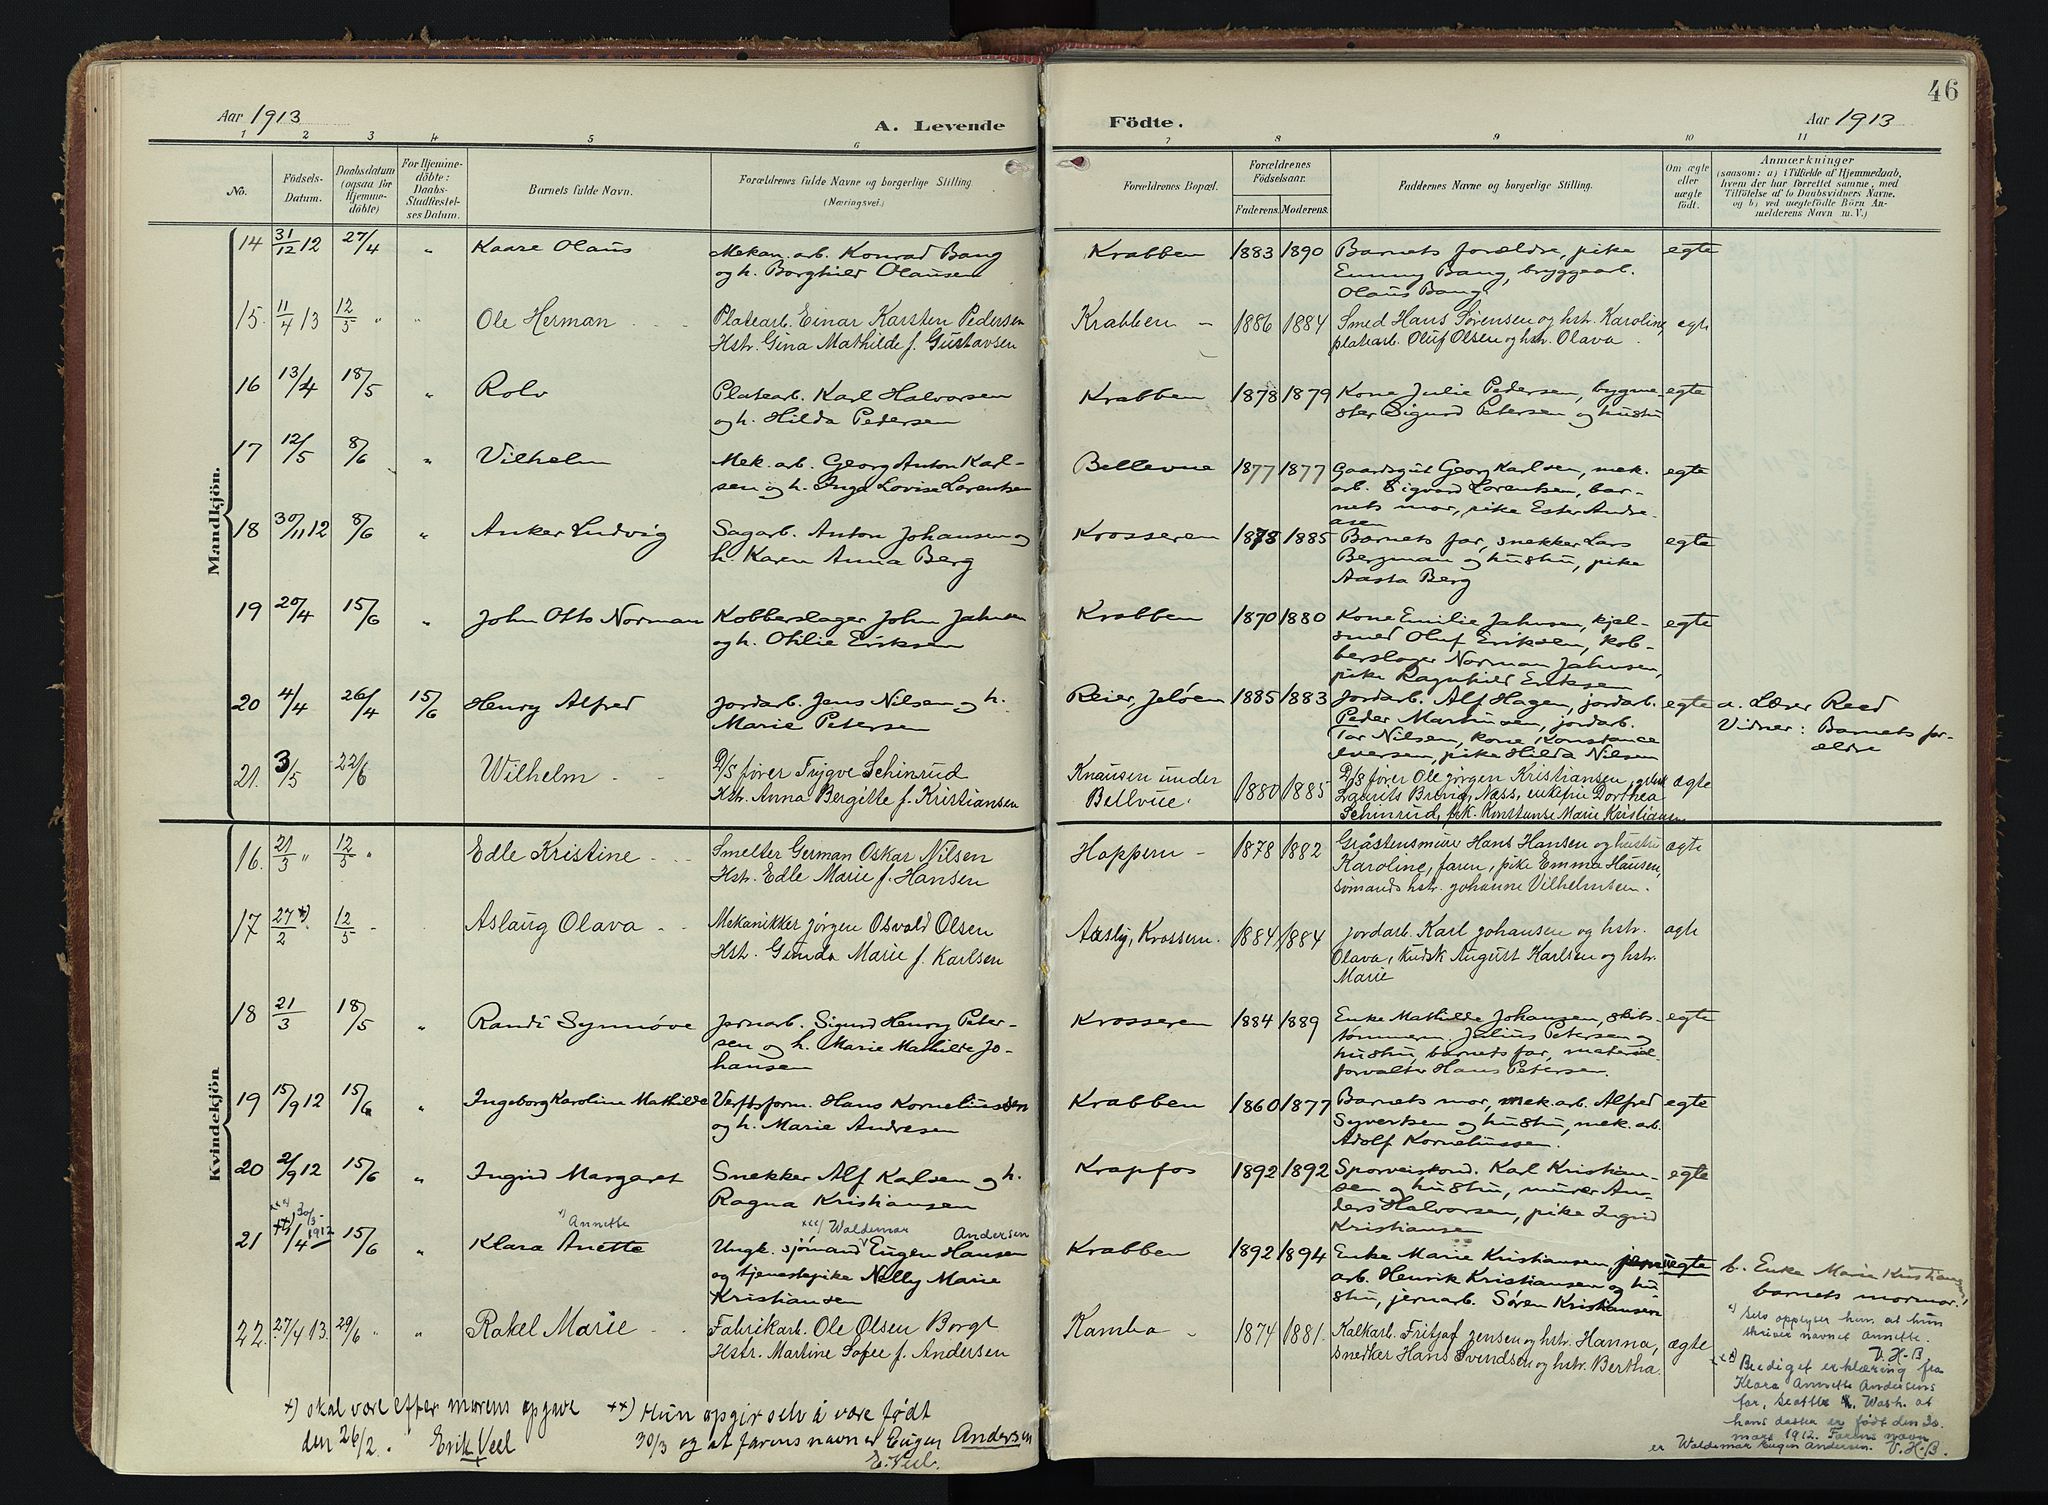 46
Aar 1913
A. Levende
Födte.
Aar 1913
1 2 3 4 5 6 7 8 9 10 11
No.
Födsels-
Datum.
Daabsdatum
(ogsaa for
Hjemme-
döbte)
For Hjemme-
döbte:
Daabs-
Stadfæstel-
ses Datum.
Barnets fulde Navn.
Forældrenes fulde Navne og borgerlige Stilling
(Næringsvei.)
Forældrenes Bopæl.
Forældrenes
Födselsaar.
Faderens. Moderens.
Faddernes Navne og borgerlige Stilling.
Om ægte
eller
uægte
født.
Anmærkninger
(saasom: a) i Tilfælde af Hjemmedaab,
hvem der har forrettet samme, med
Tilföielse af to Daabsvidners Navne.
og b) ved uægtefödte Börn An-
melderens Navn m. V.)
Mandkjön.
14 31/12 12 27/4 " Kaare Olaus Mekan. arb. Konrad Bang Krabben 1883 1890 Barnets forældre, pike egte
og h. Borghild Olausen Emmy Bang, bryggearb.
Olaus Bang
15. 11/4 13 12/5 " " Ole Herman Platearb. Einar Karsten Pedersen Krabben – 1886 1884 Smed Hans Sørensen og hstr. Karoline, egte
Hstr. Gina Mathilde f. Gustavsen platearb. Oluf Olsen og hstr. Olava.
16 13/4 18/5 " Rolv Platearb. Karl Halvorsen Krabben 1878 1879 Kone Julie Pedersen, bygme- egte
og h. Hilda Pedersen ster Sigurd Petersen og hustru
17 12/5 8/6 " Vilhelm Mek. arb. Georg Anton Karl- Bellevue 1877 1877 Gaardsgut Georg Karlsen, mek. egte
sen og h. Inga Lovise Lorentsen arb. Sigvard Lorentsen, bar-
nets mor, pike Ester Andre-
asen
18 30/11 12 8/6 " Anker Ludvig Sagarb. Anton Johansen og Krosseren 1878 1885 Barnets far, snekker Lars egte
h. Karen Anna Berg Bergman og hustru, pike
Aasta Berg
19 20/4 15/6 " John Otto Norman Kobberslager John Jahnsen Krabben 1870 1880 Kone Emilie Jahnsen, kjel- egte
og h. Otilie Eriksen smed Oluf Eriksen, kob-
berslager Norman Jahnsen,
pike Ragnhild Eriksen
20 4/4 26/4 15/6 Henry Alfred Jordarb. Jens Nilsen og h. Reier, Jeløen 1885 1883 Jordarb. Alf Hagen, jordarb. egte a. Lærer Reed
Marie Petersen Peder Martinsen, jordarb. Vidner: Barnets for-
Tor Nilsen, kone Konstance ældre
Iversen, pike Hilda Nilsen
21. 3/5 22/6 Wilhelm D/S fører Trygve Schinrud Knausen under 1880 1885 D/S fører Ole Jørgen Kristiansen, ægte
Hstr. Anna Bergitte f. Kristiansen Bellvue. Laurits Næss, enkefru Dorthea
Schinrud, pk. Konstanse Marie Kristiansen
Kvindekjön
16. 21/3 " 12/5 " Edle Kristine Smelter German Oskar Nilsen Hoppern – 1878 1882 Gråstensmurer Hans Hansen og hustru ægte
Hstr. Edle Marie f. Hansen Karoline, faren, pike Emma Hansen,
sømands hstr. Johanne Vilhelmsen.
17 27/2 x) 12/5 Aslaug Olava Mekanikker Jørgen Osvald Olsen Aasly, Krossern. 1884 1884 Jordarb. Karl Johansen og hstr. egte
Hst. Gunda Marie f. Karlsen Olava, Kudsk August Karlsen og hstr.
Marie
18 21/3 18/5 " Randi Synnøve Jernarb. Sigurd Henry Peter- Krosseren 1884 1889 Enke Mathilde Johansen, skibs- egte
sen og h. Marie Mathilde Jo- tømmerm. Julius Petersen og
hansen hustru, barnets far, material-
forvalter Hans Petersen.
19 15/9 12 15/6 " Ingeborg Karoline Mathilde Verftsform. Hans Korneliussen Krabben 1860 1877 Barnets mor, mek. arb. Alfred egte
og h. Marie Andresen Syvertsen og hustru, mek. arb.
Adolf Korneliussen.
20 2/9 12 15/6 " Ingrid Margaret Snekker Alf Karlsen og h. Krapfos 1892 1892 Sporveiskond. Karl Kristian- egte
Ragna Kristiansen sen og hustru, murer An-
ders Halvorsen, pike Ingrid
Kristiansen
xxx) 30/3 1912 x) Annette xxx) Waldemar Andersen
21 /4 15/6 " Klara Anette Ungk. sjømand Eugen Hansen Krabben 1892 1894 Enke Marie Kristiansen, uegte b. Enke Marie Kristiansen,
og tjenestepike Nelly Marie arb. Henrik Kristiansen og hu- barnets mormor.
Kristiansen stru, jernarb. Søren Kristiansen
22. 27/4 13. 29/6 " " Rakel Marie Fabrikarb. Ole Olsen Borge Kambo – 1874 1881. Kalkarb. Fritjof Jensen og hstr. Hanna, ægte
Hstr. Martine Sofie f. Andersen snedker Hans Svendsen og hstr. Bertha.
x) Selv opplyser hun at hun
skriver navnet Annette.
V. H-B.
xxx) Beediget erklæring fra
Klara Annette Andersens
far, Seattle, Wash. at
hans datter er født den 30.
mars 1912. Farens navn
er Waldemar Eugen Andersen. V. H-B.
x) skal være efter morens opgave
den 26/2. Erik Veel
xx) Hun opgir selv å være født
30/3 og at farens navn er Eugen Andersen
E. Veel.